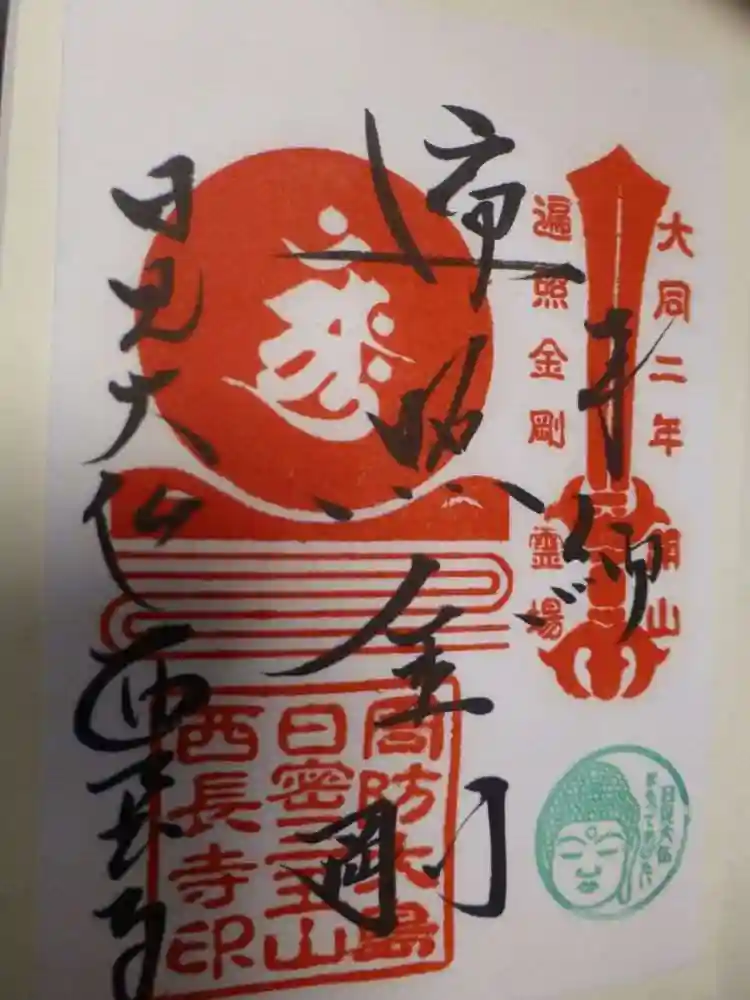 大同二年 開山
遍照金剛 霊場
奉拝
遍照金剛
日見大仏 西長寺
周防大島
日密三宝山
西長寺印
日見大仏